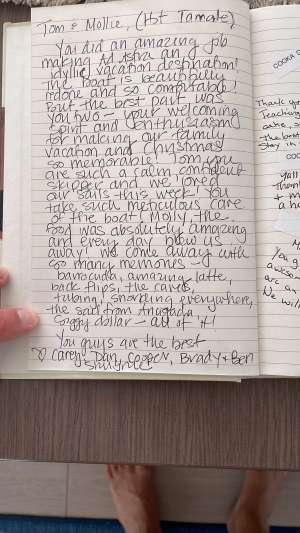 Tom & Mollie, (Hot Tamale)
You did an amazing job
making Ad Astra an
idyllic vacation destination!
The boat is beautifully
redone and so comfortable!
But the best part was
you two – your welcoming
spirit and enthusiasm
for making our family
vacation and Christmas
so memorable! Tom you
are such a calm confident
skipper and we loved
our sails this week! You
take such meticulous care
of the boat! Molly, the
food was absolutely amazing
and every day blew us
away! We come away with
so many memories –
barracuda, amazing latte,
back flips, the caves,
tubing, snorkling everywhere,
the sail from Anegada
Soggy dollar – all of it!
You guys are the best
Carey, Dan, Cooper, Brady + Ben
Thank y
Teaching
the best
Stay in
yall
Them
+ m
a h
You g
awesom
are an
We will